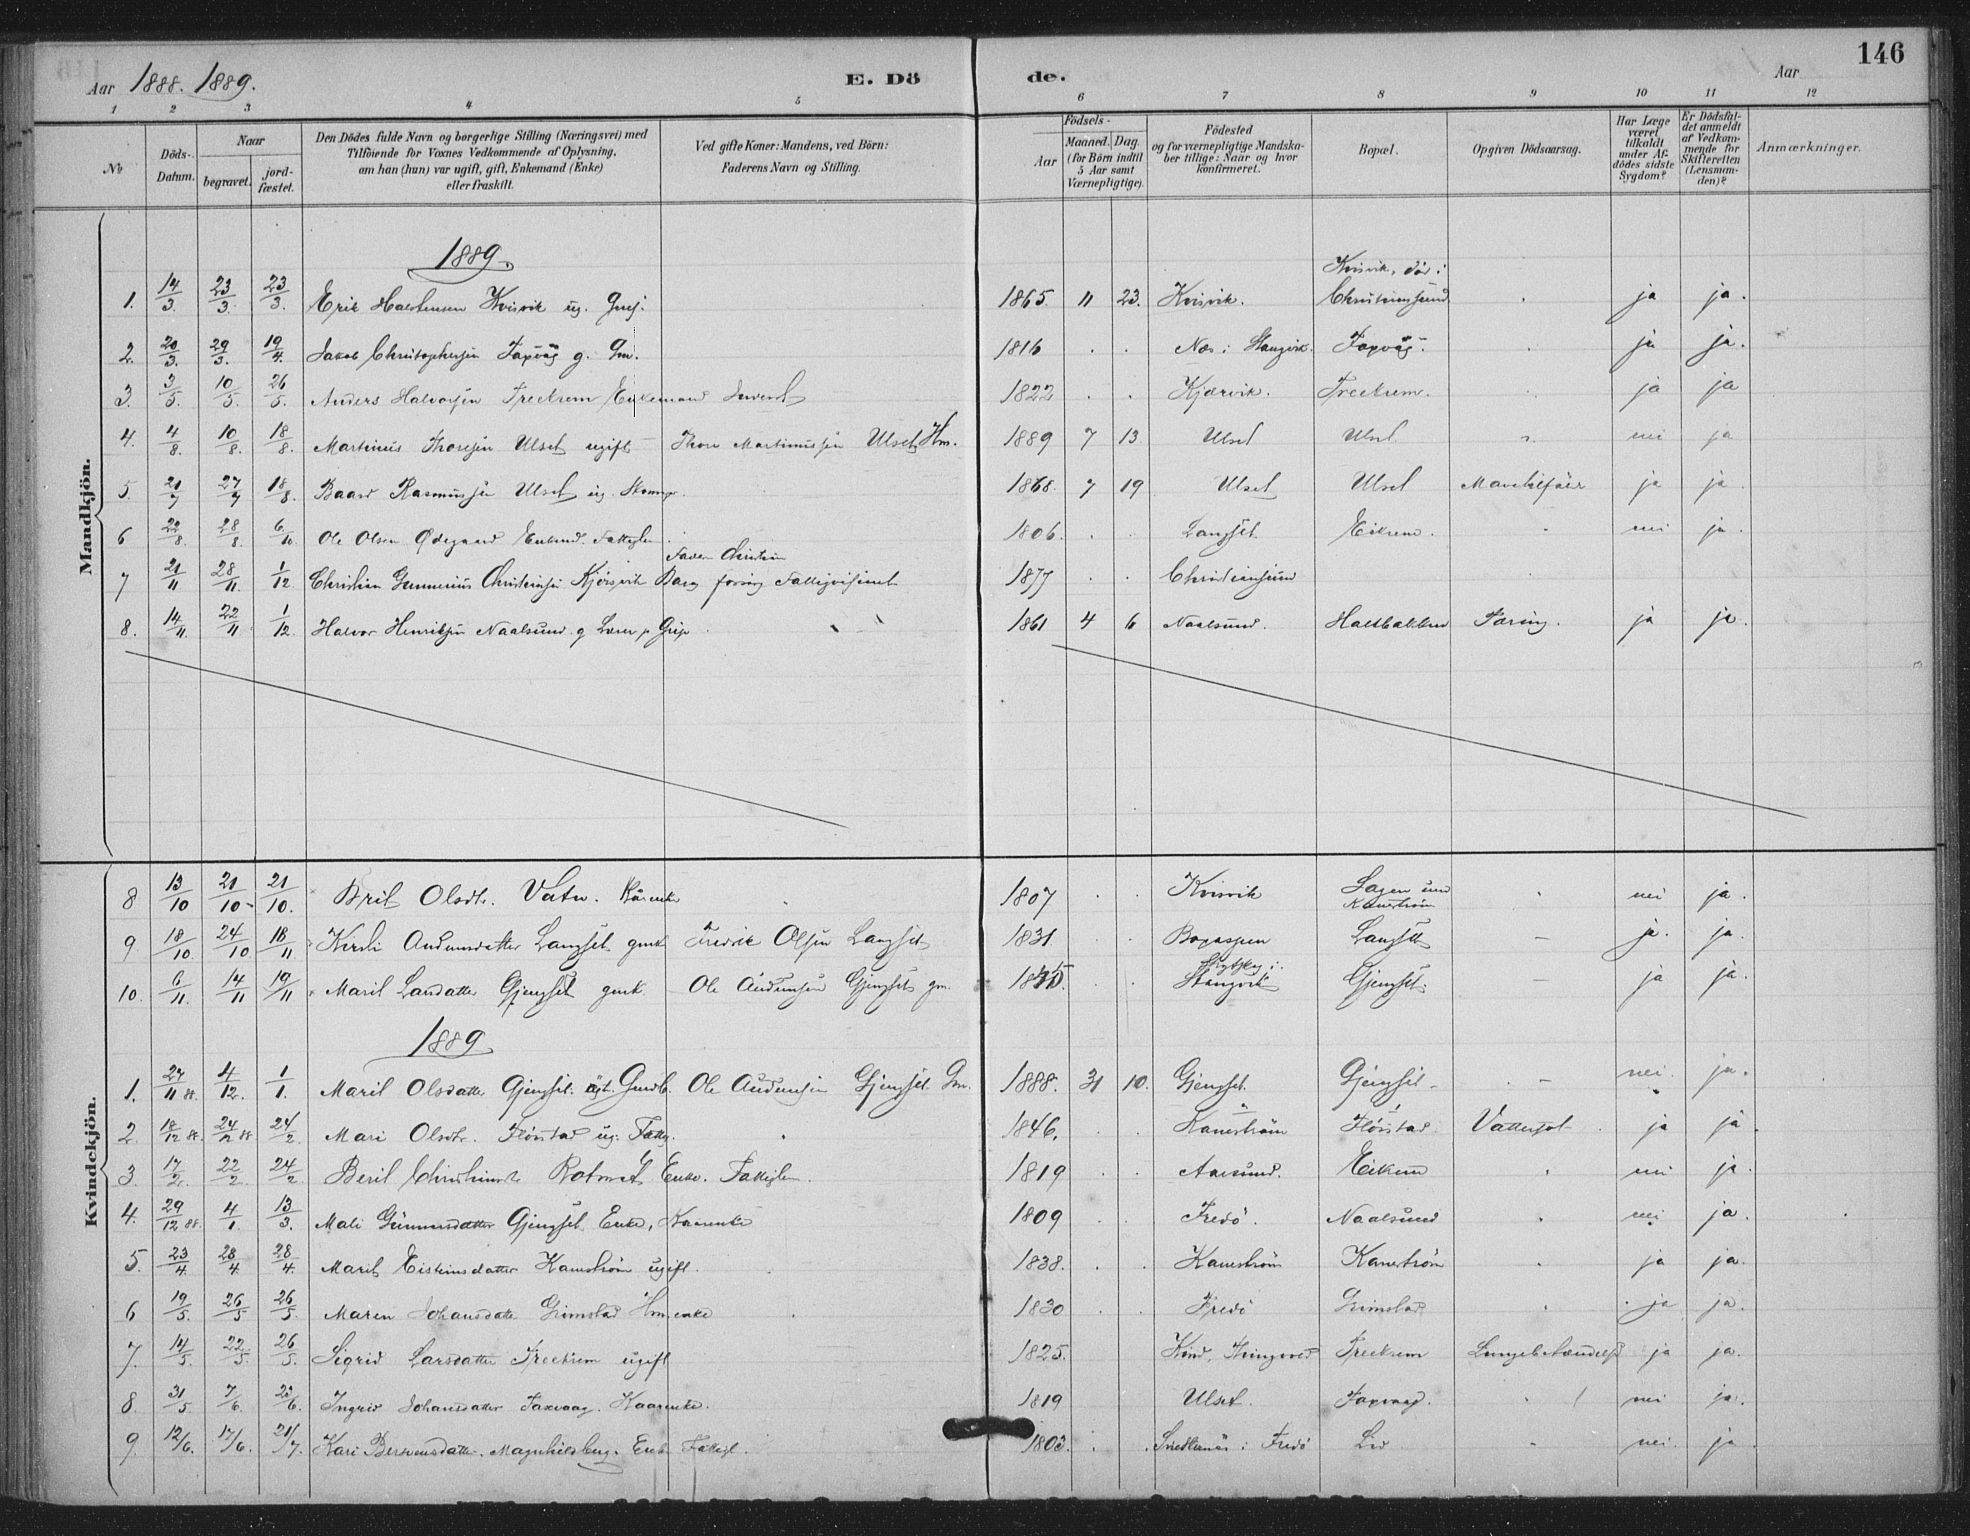 146
Aar 1888. 1889. E. Dö de. Aar
1 2 3 4 5 6 7 8 9 10 11 12
No Döds-Datum. Naar begravet. jordfæstet. Den Dödes fulde Navn og borgerlige Stilling (Næringsvei) med Tilföiende for Voxnes Vedkommende af Oplysning, om han (hun) var ugift, gift, Enkemand (Enke) eller fraskilt. Ved gifte Koner: Mandens, ved Börn: Faderens Navn og Stilling. Födsels- Aar Maaned. Dag. (for Börn indtil 5 Aar samt Værnepligtige). Födested og for værnepligtige Mandskaber tillige: Naar og hvor konfirmeret. Bopæl. Opgiven Dödsaarsag. Har Læge været tilkaldt under Afdödes sidste Sygdom? Er Dödsfaldet anmeldt af Vedkommende for Skifteretten (Lensmanden)? Anmærkninger.
Mandkjön.
1889.
1. 14/3. 23/3. 23/3. Erik Halstensen Kvisvik ug. 1865. 11 23. Kvisvik. Kvisvik, död i Christiansund ja ja.
2 20/3. 29/3. 19/4. Jakob Christophersen Faxvåg g. Gm. 1816 . . Næs i Stangvik. Faxvåg. ja ja.
3. 3/5. 10/5. 26/5. Anders Halvorsen Treekrem Enkemand 1822 . . Kjærvik. Treekrem. ja ja
4. 4/8. 10/8. 18/8. Martinus Thoresen Ulset ugift Thore Martinussen Ulset Hm. 1889 7 13 Ulset Ulset nei ja
5. 21/7 27/7 18/8. Baard Rasmussen Ulset ug. 1868. 7 19 Ulset Ulset ja ja.
6 22/8. 28/8. 6/10. Ole Olsen Ødegaard Enkemd. Fattiglem 1806. . . Langset Eikrem. nei ja.
7 21/11 28/11. 1/12 Christian Gunnerius Christensen 1877 . . Christiansund
8. 14/11 22/11 1/12. Halvor Henriksen Naalsund g. Lærer p. Grip 1861 4 6 Naalsund. Tæring. ja ja.
Kvindekjön.
8 13/10 21/10. 21/10. Brit Olsdtr. Vatn. Kårenke 1807 . . Kvisvik Kanestrøm nei ja.
9. 18/10 24/10 18/11 Kirsti Audunsdatter Langset gmk. Fredrik Olsen Langset 1831. . . Langset – ja. ja.
10. 6/11. 14/11 19/11 Marit Larsdatter Gjengset gmk. Ole Audunsen Gjengset gm. Stangvik Gjengset. – ja ja.
1889
1. 27/11 88. 4/12. 1/1. Marit Olsdatter Gjengset. Ole Audunsen Gjengset Gm. 1888. 31 10. Gjengset. Gjengset – nei. ja.
2. 18/12 88. 24/12 88 24/2. Mari Olsdtr. Flöistad ug. Fattig. 1846. . . Kanestrøm Flöistad. Vattersot ja ja
3. 17/2. 22/2. 24/2 Berit Enke. Fattiglem. 1819 . . Aarsund. Eikrem nei ja
4. 29/12 88. 4/1. 13/3. Mali Gunnarsdatter Gjengset Enke, Kaarenke 1809 . . Fredö. Naalsund nei ja.
5. 23/4. 28/4. 28/4. Marit Eistensdatter Kanestrøm ugift. 1838. . . Kanestrøm Kanestrøm ja ja.
6 19/5. 26/5 26/5. Maren Johansdatter Grimstad Hm.enke 1830 . . Fredö Grimstad ja ja.
7. 14/5. 22/5. 26/5. Sigrid Larsdatter Treekrem ugift 1825. Treekrem ja ja.
8. 31/5 7/6. 23/6. Ingrid Johansdatter Faxvaag. Kaarenke. 1819 Ulset. Faxvaag. nei ja.
9. 12/6. 17/6. 21/7. Kari Magnhildberg. Enke Fattigl. 1803. . . i Fredö nei. ja